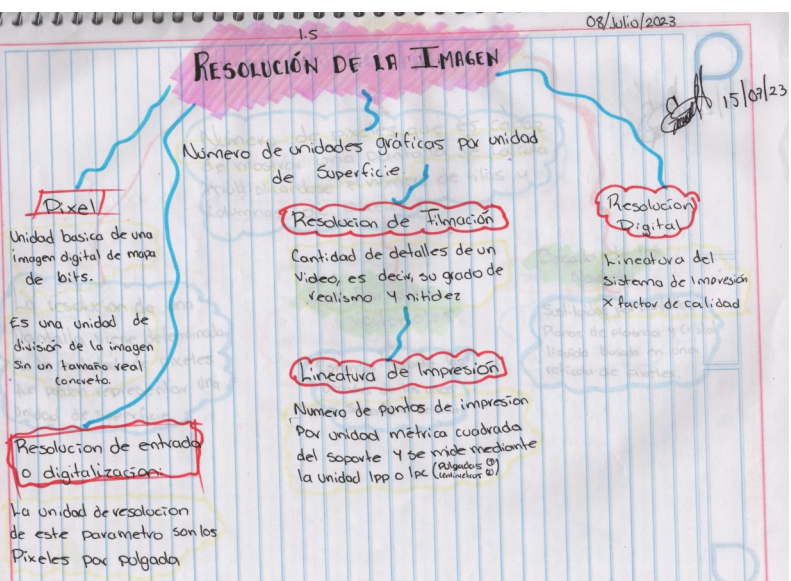 08/Julio/2023
1.5
RESOLUCIÓN DE LA IMAGEN
15/07/23
Número de unidades gráficas por unidad
de Superficie
Pixel
Unidad basica de una
imagen digital de mapa
de bits.
Es una unidad de
división de la imagen
sin un tamaño real
concreto.
Resolucion de entrada
o digitalizacion:
La unidad de resolucion
de este parametro son los
Pixeles por pulgada
Resolucion de Filmación
Cantidad de detalles de un
Video, es decir, su grado de
realismo y nitidez
Lineatura de Impresión
Numero de puntos de impresion
Por unidad métrica cuadrada
del soporte y se mide mediante
la unidad lpp o lpc (Pulgadas
centimetros)
Resolucion
Digital
Lineatura del
Sistema de Impresión
x factor de calidad